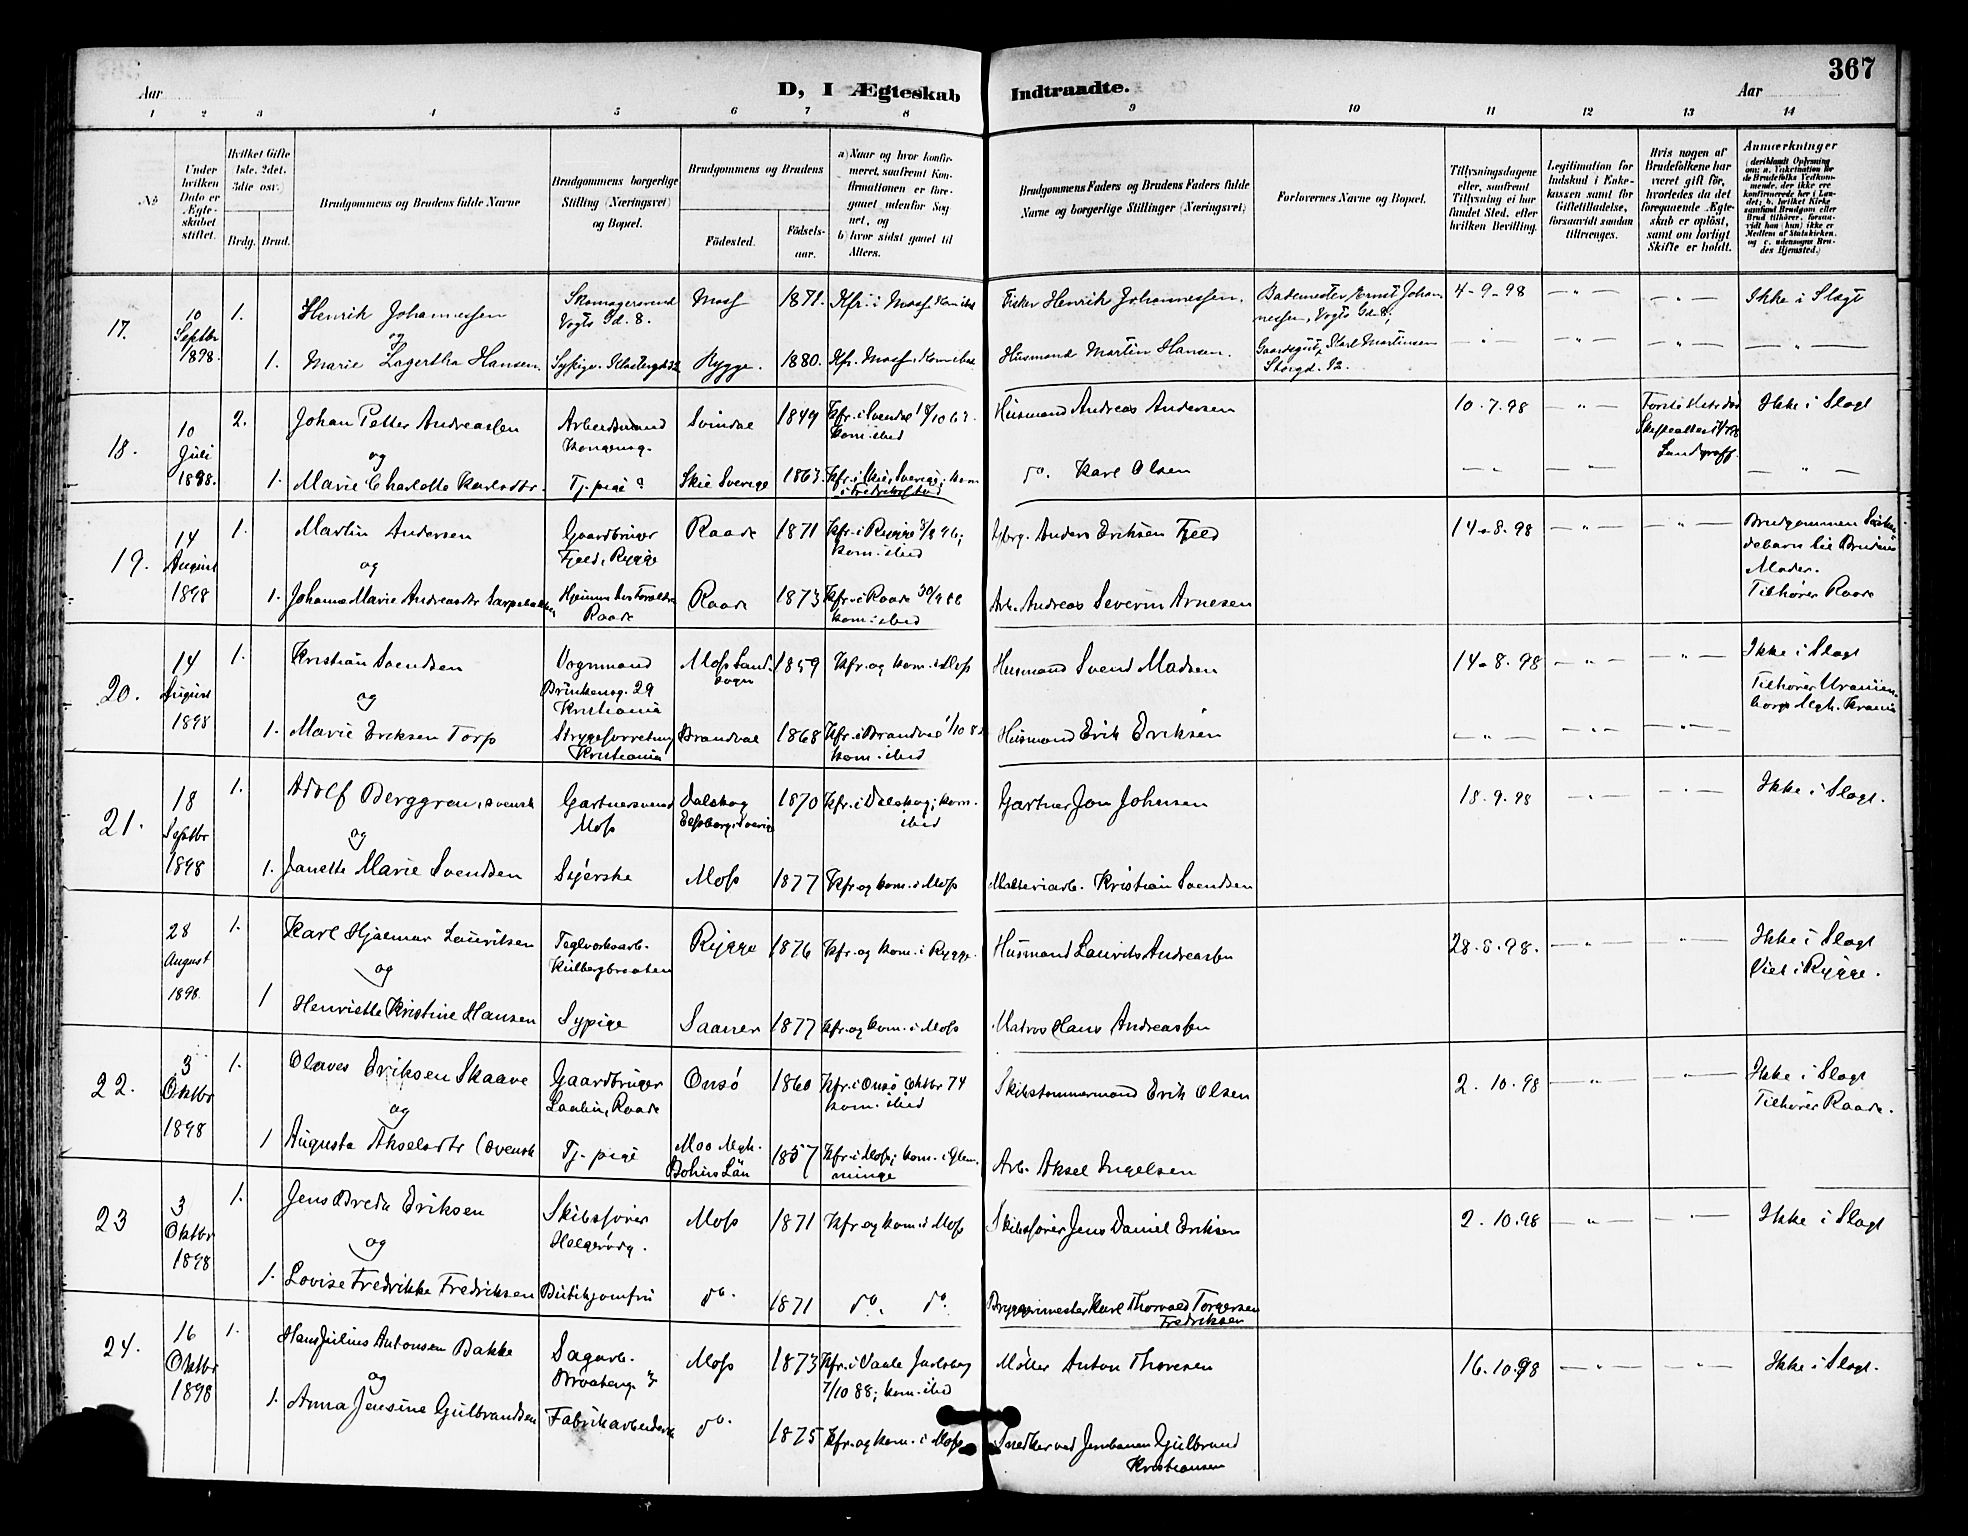 367
Aar
D, I Ægteskab Indtraadte.
Aar
1 2 3 4 5 6 7 8 9 10 11 12 13 14
No
Under hvilken Dato er Ægteskabet stiftet.
Hvilket Gifte 1ste, 2det, 3die osv.)
Brdg. Brud.
Brudgommens og Brudens fulde Navne
Brudgommens borgerlige Stilling (Næringsvei) og Bopæl.
Brudgommens og Brudens
Fødested.
Fødselsaar.
a) Naar og hvor konfirmeret, samt om Konfirmationen er foregaaet udenfor Sognet, og
b) hvor sidst gaaet til Alters.
Brudgommens Faders og Brudens Faders fulde Navne og borgerlige Stillinger (Næringsvei)
Forlovernes Navne og Bopæl.
Tillysningsdagene eller, saafremt Tillysning ei har fundet Sted, efter hvilken Bevilling.
Legitimation for Indskud i Enkekassen samt for Giftetilladelse, forsaavidt saadan tiltrænges.
Hvis nogen af Brudefolkene har været gift før, hvorledes da det foregaaende Ægteskab er opløst, samt om lovligt Skifte er holdt.
Anmærkninger
17.
10 Septbr 1898.
1.
Henrik Johannessen
Skomagersvend
Vogts Gd. 8.
Moss
1871.
Kfr. i Moss
Fisker Henrik Johannessen.
Bademester Ernst Johannessen, Vogts Gd. 8,
4-9-98
Ikke i Slægt
og
1.
Marie Lagertha Hansen.
Rygge.
1880.
Kfr. Moss
Husmand Martin Hansen.
Karl Martinsen
Storgd. 12.
18.
10 Juli 1898.
2.
Johan Petter Andreassen
Arbeidsmand
Svindal
1849
kom. ibid
Husmand Andreas Andersen
10.7.98
Ikke i Slægt
og
1.
Marie Charlotte Karlsdtr.
Tj. pige
Skie Sverige
1863.
i Fredrikstad
do. Karl Olsen
19.
14 August 1898
1.
Martin Andersen
Gaardbruger
Fjeld, Rygge
Raade
1871
kom. ibid
Gbrg. Anders Eriksen Fjeld
14-8-98
Brudgommen
til Brudens
Moder.
Tilhører Raade
og
1.
Johanne Marie Andreasdtr
Raade
Raade
1873
kom. ibid
Arb. Andreas Severin Arnesen
20.
14 August 1898
1.
Kristian Svendsen
Vognmand
29
Kristiania
Moss Landsogn
1859
Kfr. og kom. i Moss
Husmand Svend Madsen
14-8-98
Ikke i Slægt
Tilhører Uranienborg Mgh. Krania
og
1.
Marie Eriksen Torp
Strygeforretning
Kristiania
Brandval
1868
Kfr. i Brandval
kom. ibid
Husmand Erik Eriksen
21.
18 Septbr 1898
1.
Adolf Berggren, svensk
Gartnersvend
Moss
Dalskog
Elfsborg, Sverig
1870
Kfr. i Dalskog; kom. ibid
Gartner Jon Johnsen
18.9.98
Ikke i Slægt.
og
1.
Janette Marie Svendsen
Syerske
Moss
1877
Kfr. og kom. i Moss
Kristian Svendsen
28 August 1898
1.
Karl Hjalmar Lauritsen
Teglverksarb.
Kulbergbraaten
Rygge
1876
Kfr. og kom. i Rygge.
Husmand Laurits Andreassen
28.8.98.
Ikke i Slægt
Viet i Rygge.
og
1
Henriette Kristine Hansen
Sypige
Saaner
1877
Kfr. og kom. i Moss
Matros Hans Andreassen
22.
3 Oktbr 1898
1.
Olaves Eriksen Skaave
Gaardbruger
Raade
Onsø
1860
Kfr. i Onsø Oktbr 74
kom. ibid
Skibstømmermand Erik Olsen
2.10.98
Ikke i Slægt
Tilhører Raade.
og
1
Augusta Akselsdtr (svensk
Tj. pige
Moo Mgh.
Bohus Län
1857
Kfr. i Moss; kom. i Glemminge
Arb. Aksel Ingelsen
23
3 Oktbr 1898
1.
Jens Brede Eriksen
Skibsfører
Helgerødg.
Moss
1871
Kfr og kom. i Moss
Skibsfører Jens Daniel Eriksen
2.10.98
Ikke i Slægt
og
1.
Lovise Fredrikke Fredriksen
Butikjomfru
do.
1871
do. do.
Bryggerimester Karl Thorvald Torgersen
Fredriksen
24.
16 Oktbr 1898
1.
Hans Julius Antonsen Bakke
Sagarb.
Moss
1873
Kfr. i Vaale Jarlsberg
7/10 88; kom. ibid
Møller Anton Thoresen
16.10.98
Ikke i Slægt.
og
1.
Anna Jensine Gulbrandsen
Fabrikarbeiderske
do.
1875
Kfr. og kom. i Moss
Snedker ved Jernbanen Gulbrand
Kristiansen